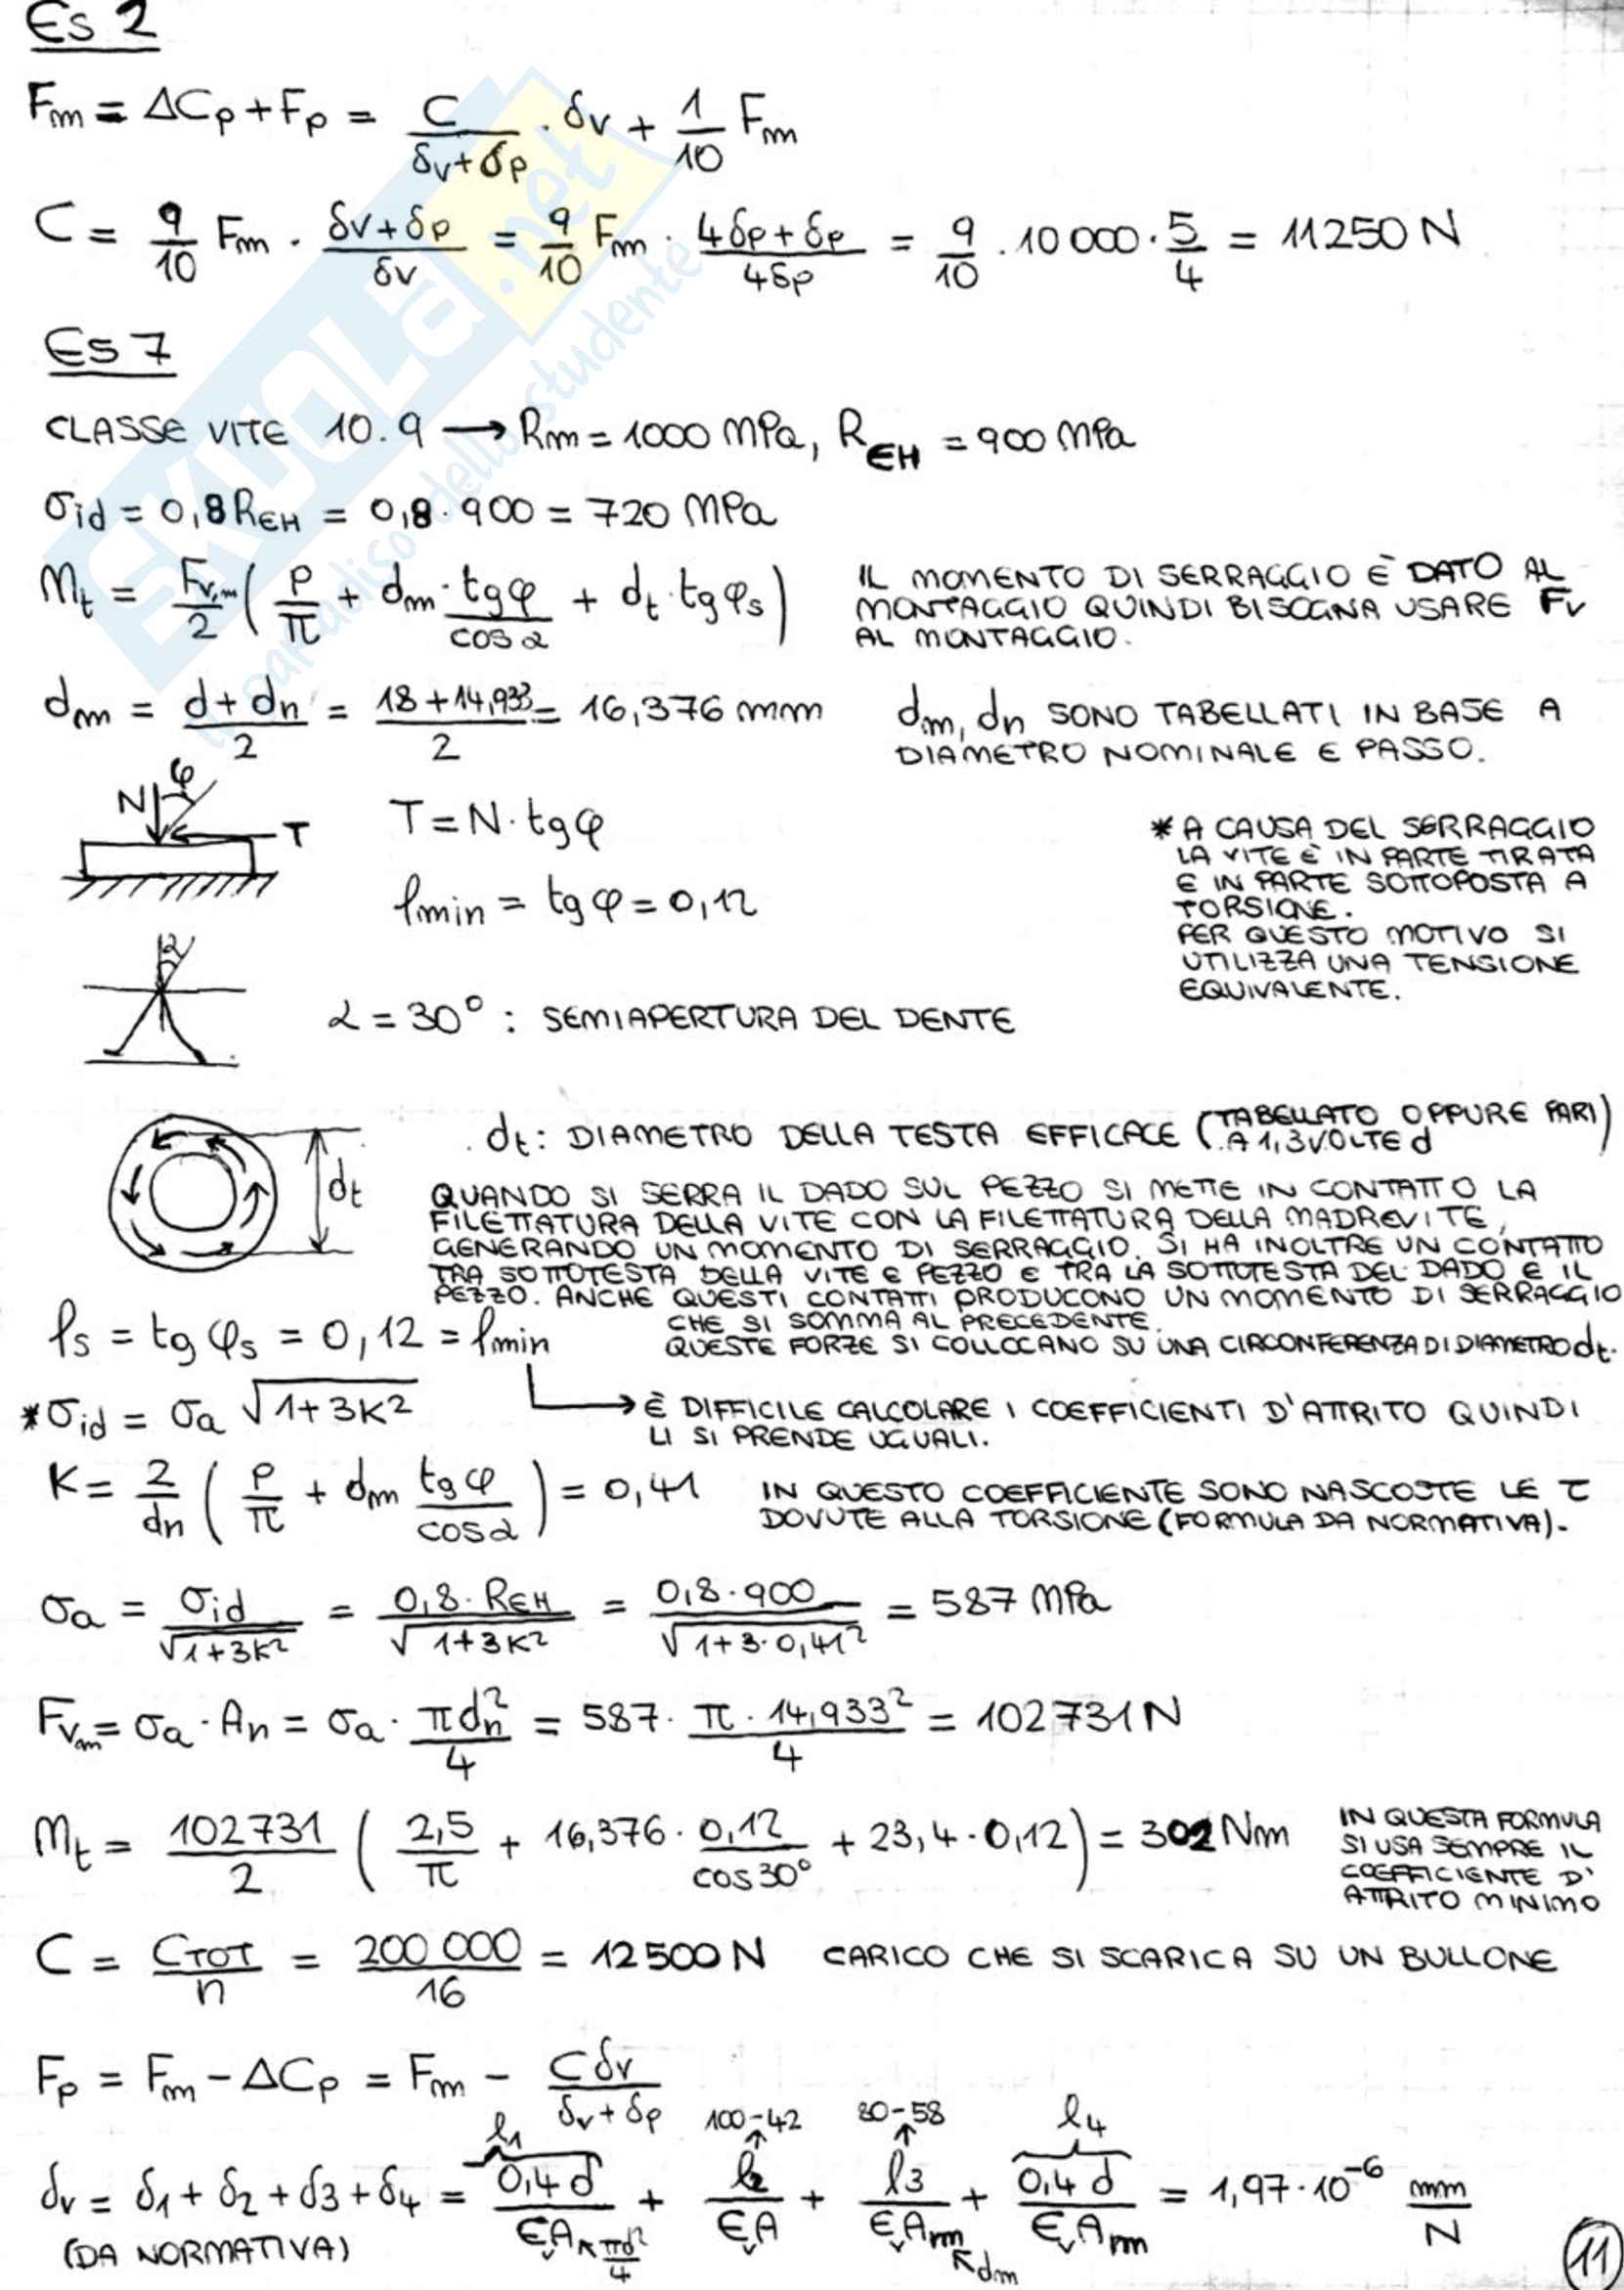 Es 2
Fm = ΔCp + Fp = C/(δv+δp) · δv + 1/10 Fm
C = 9/10 Fm · (δv+δp)/δv = 9/10 Fm · (4δp+δp)/4δp = 9/10 · 10 000 · 5/4 = 11250 N
Es 7
CLASSE VITE 10.9 → Rm = 1000 MPa, REH = 900 MPa
σid = 0,8 REH = 0,8 · 900 = 720 MPa
Mt = Fv,m/2 ( P/π + dm · tgφ/cosα + dt · tgφs )
IL MOMENTO DI SERRAGGIO È DATO AL
MONTAGGIO QUINDI BISOGNA USARE Fv
AL MONTAGGIO.
dm = (d + dn)/2 = (18 + 14,933)/2 = 16,376 mm
dm, dn SONO TABELLATI IN BASE A
DIAMETRO NOMINALE E PASSO.
φ
N
T
T = N · tgφ
fmin = tgφ = 0,12
* A CAUSA DEL SERRAGGIO
LA VITE È IN PARTE TIRATA
E IN PARTE SOTTOPOSTA A
TORSIONE.
PER QUESTO MOTIVO SI
UTILIZZA UNA TENSIONE
EQUIVALENTE.
α
α = 30° : SEMIAPERTURA DEL DENTE
dt
dt : DIAMETRO DELLA TESTA EFFICACE (TABELLATO OPPURE PARI
A 1,3 VOLTE d)
QUANDO SI SERRA IL DADO SUL PEZZO SI METTE IN CONTATTO LA
FILETTATURA DELLA VITE CON LA FILETTATURA DELLA MADREVITE,
GENERANDO UN MOMENTO DI SERRAGGIO. SI HA INOLTRE UN CONTATTO
TRA SOTTOTESTA DELLA VITE E PEZZO E TRA LA SOTTOTESTA DEL DADO E IL
PEZZO. ANCHE QUESTI CONTATTI PRODUCONO UN MOMENTO DI SERRAGGIO
CHE SI SOMMA AL PRECEDENTE.
QUESTE FORZE SI COLLOCANO SU UNA CIRCONFERENZA DI DIAMETRO dt.
fs = tgφs = 0,12 = fmin
→ È DIFFICILE CALCOLARE I COEFFICIENTI D'ATTRITO QUINDI
LI SI PRENDE UGUALI.
* σid = σa √(1+3K²)
K = 2/dn ( P/π + dm tgφ/cosα ) = 0,41
IN QUESTO COEFFICIENTE SONO NASCOSTE LE τ
DOVUTE ALLA TORSIONE (FORMULA DA NORMATIVA).
σa = σid/√(1+3K²) = 0,8 · REH/√(1+3K²) = 0,8 · 900/√(1+3·0,41²) = 587 MPa
Fvm = σa · An = σa · πdn²/4 = 587 · π · 14,933²/4 = 102731 N
Mt = 102731/2 ( 2,5/π + 16,376 · 0,12/cos30° + 23,4 · 0,12 ) = 302 Nm
IN QUESTA FORMULA
SI USA SEMPRE IL
COEFFICIENTE D'
ATTRITO MINIMO
C = CTOT/n = 200 000/16 = 12500 N CARICO CHE SI SCARICA SU UN BULLONE
Fp = Fm - ΔCp = Fm - Cδv/(δv + δp)
l1 100-42 80-58 l4
δv = δ1 + δ2 + δ3 + δ4 = 0,4 d/EvA + l2/EvA + l3/EvAm + 0,4 d/EvAm = 1,97 · 10⁻⁶ mm/N
(DA NORMATIVA) πd²/4 dm
11
SKUOLA.net
il paradiso dello studente